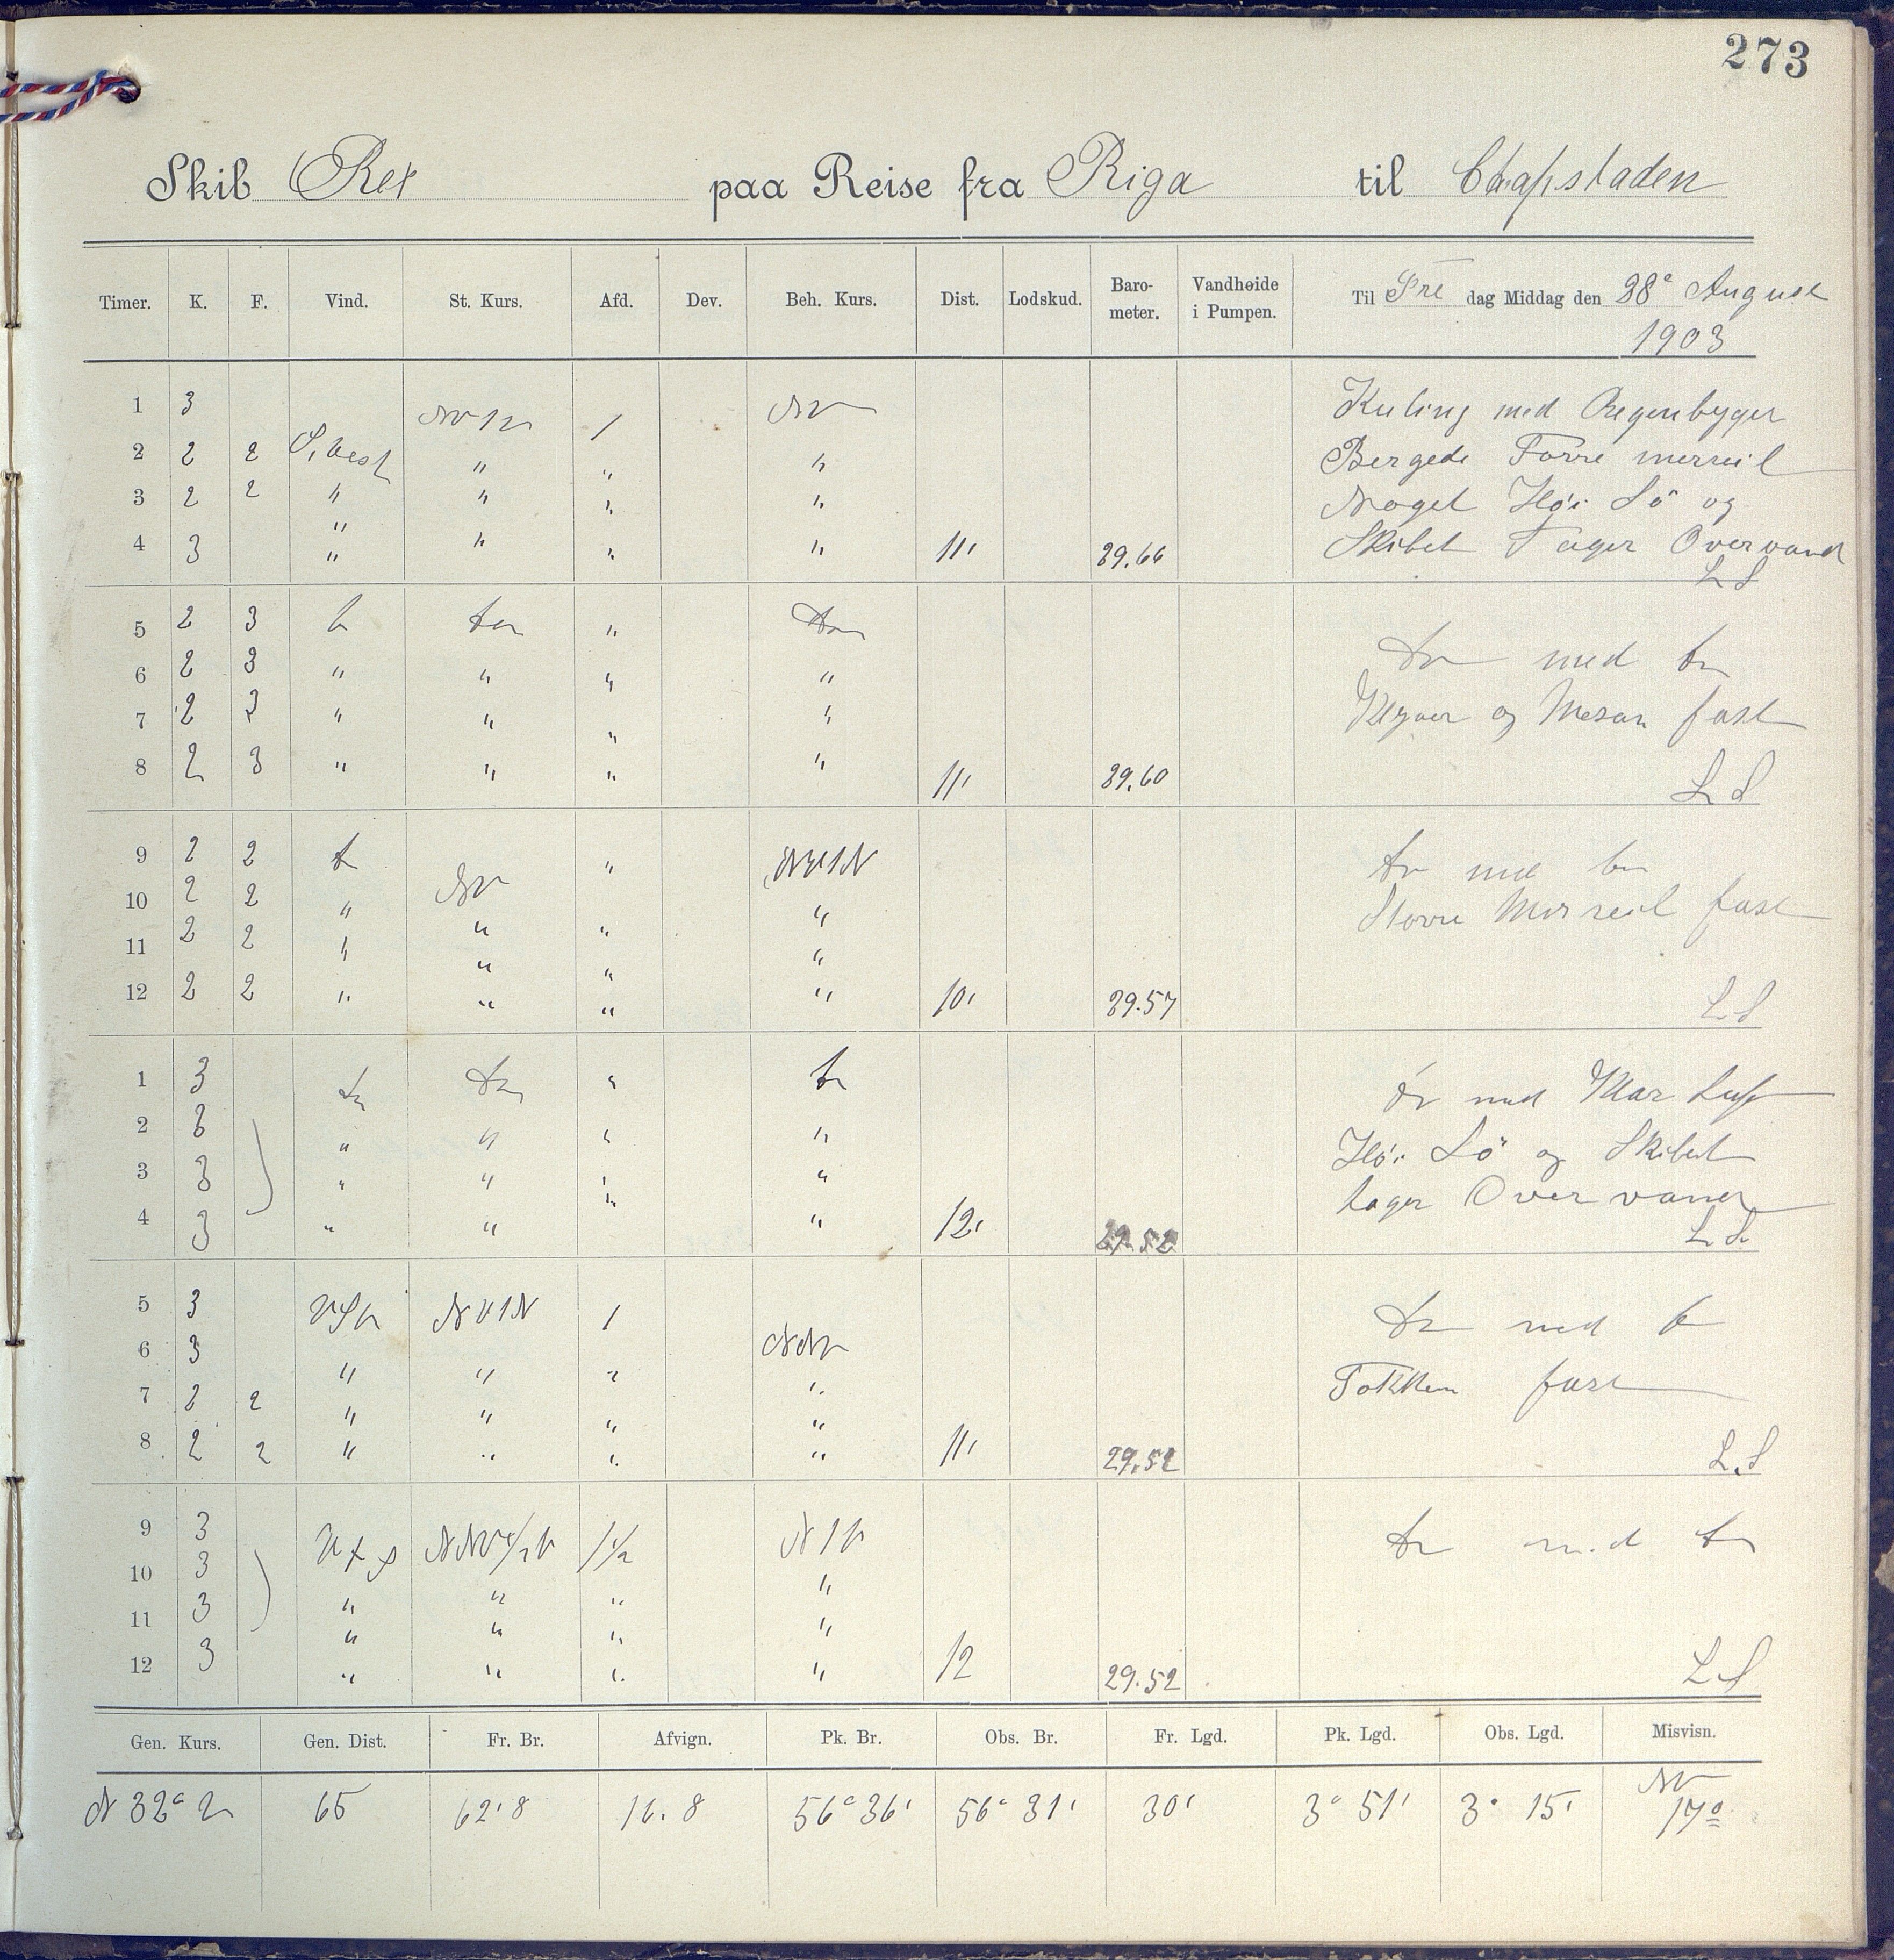 273
Skib Rex paa Reise fra Riga til Chapstaden
Timer. K. F. Vind. St. Kurs. Afd. Dev. Beh. Kurs. Dist. Lodskud. Baro-meter. Vandhøide i Pumpen. Til Fre dag Middag den 28de August
1903
1 3 NV Kuling med Regenbyger
2 2 2 S. Vest " " " Bergede Forre merseil
3 2 2 " " " " Noget Høi Sö og
4 3 " " " " 11' 29.66 Skibet Tager Overvand
L S
5 2 3 "
6 2 3 " " " " med
7 2 3 " " " " Klyver og Mesan fast
8 2 3 " " " " 11' 29.60 L S
9 2 2 " NV1N med
10 2 2 " NV " Storre Merseil fast
11 2 2 " " " "
12 2 2 " " " " 10' 29.57 L. S
1 3 " med Klar Luft
2 3 " " " " Høi Sö og Skibet
3 3 " " " " tager Over vand
4 3 " " " " 12' 29.52 L. S.
5 3 VSV NV1N 1 med
6 3 " " " NNV Fokken fast
7 2 2 " " " "
8 2 2 " " " " 11' 29.52 L. S
9 3 1½ N1V med
10 3 " " " "
11 3 " " " "
12 3 " " " " 12 29.52 L S
Gen. Kurs. Gen. Dist. Fr. Br. Afvign. Pk. Br. Obs. Br. Fr. Lgd. Pk. Lgd. Obs. Lgd. Misvisn.
N 32° V 65 62'8 16.8 56° 36' 56° 31' 30' 3° 51' 3° 15' NV
17°